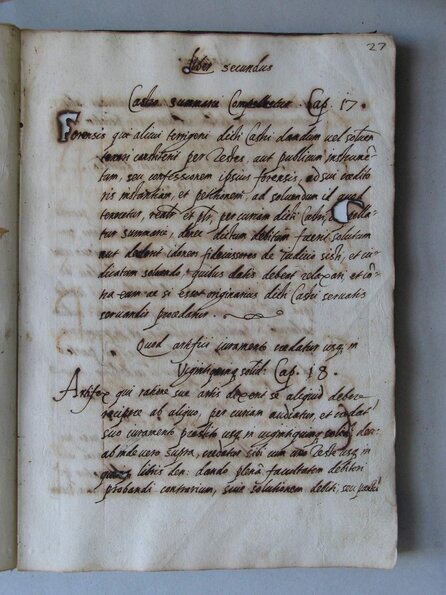 27
Liber secundus
Castri summarie Compellectur Cap. 17.
Forensis qui alicui terrigene dicti Castri dandum vel solven
per Testes, aut publicum instrumē
tum, seu confessionem ipsius forensis, ad sui credito
ris instantiam, et petitionem, ad solvendum id quod
teneatur, realr et pr, per curiam dicti Castri, Compella
tur summarie, donec dictum debitum fuerit solutum
aut dederit idoneos fideiussores de iudicio sisti, et iu
dicatum solvendo, quibus datis debeat relaxari, et cō
tra eum ac si esset originarius dicti Castri servatis
servandis procedatur.
Quod Artifici iuramento credatur usq in
Vigintiquinq solid. Cap. 18.
Artifex qui ratione suae artis dixerit se aliquid debere
recipere ab aliquo, per curiam audiatur, et credat
suo iuramento prestito usq in vigintiquinq solid. den.
ab inde vero supra, credatur sibi cum uno Teste usq in
libris den. dando plenā facultatem debitori
probandi contrarium, sive solutionem debiti, seu